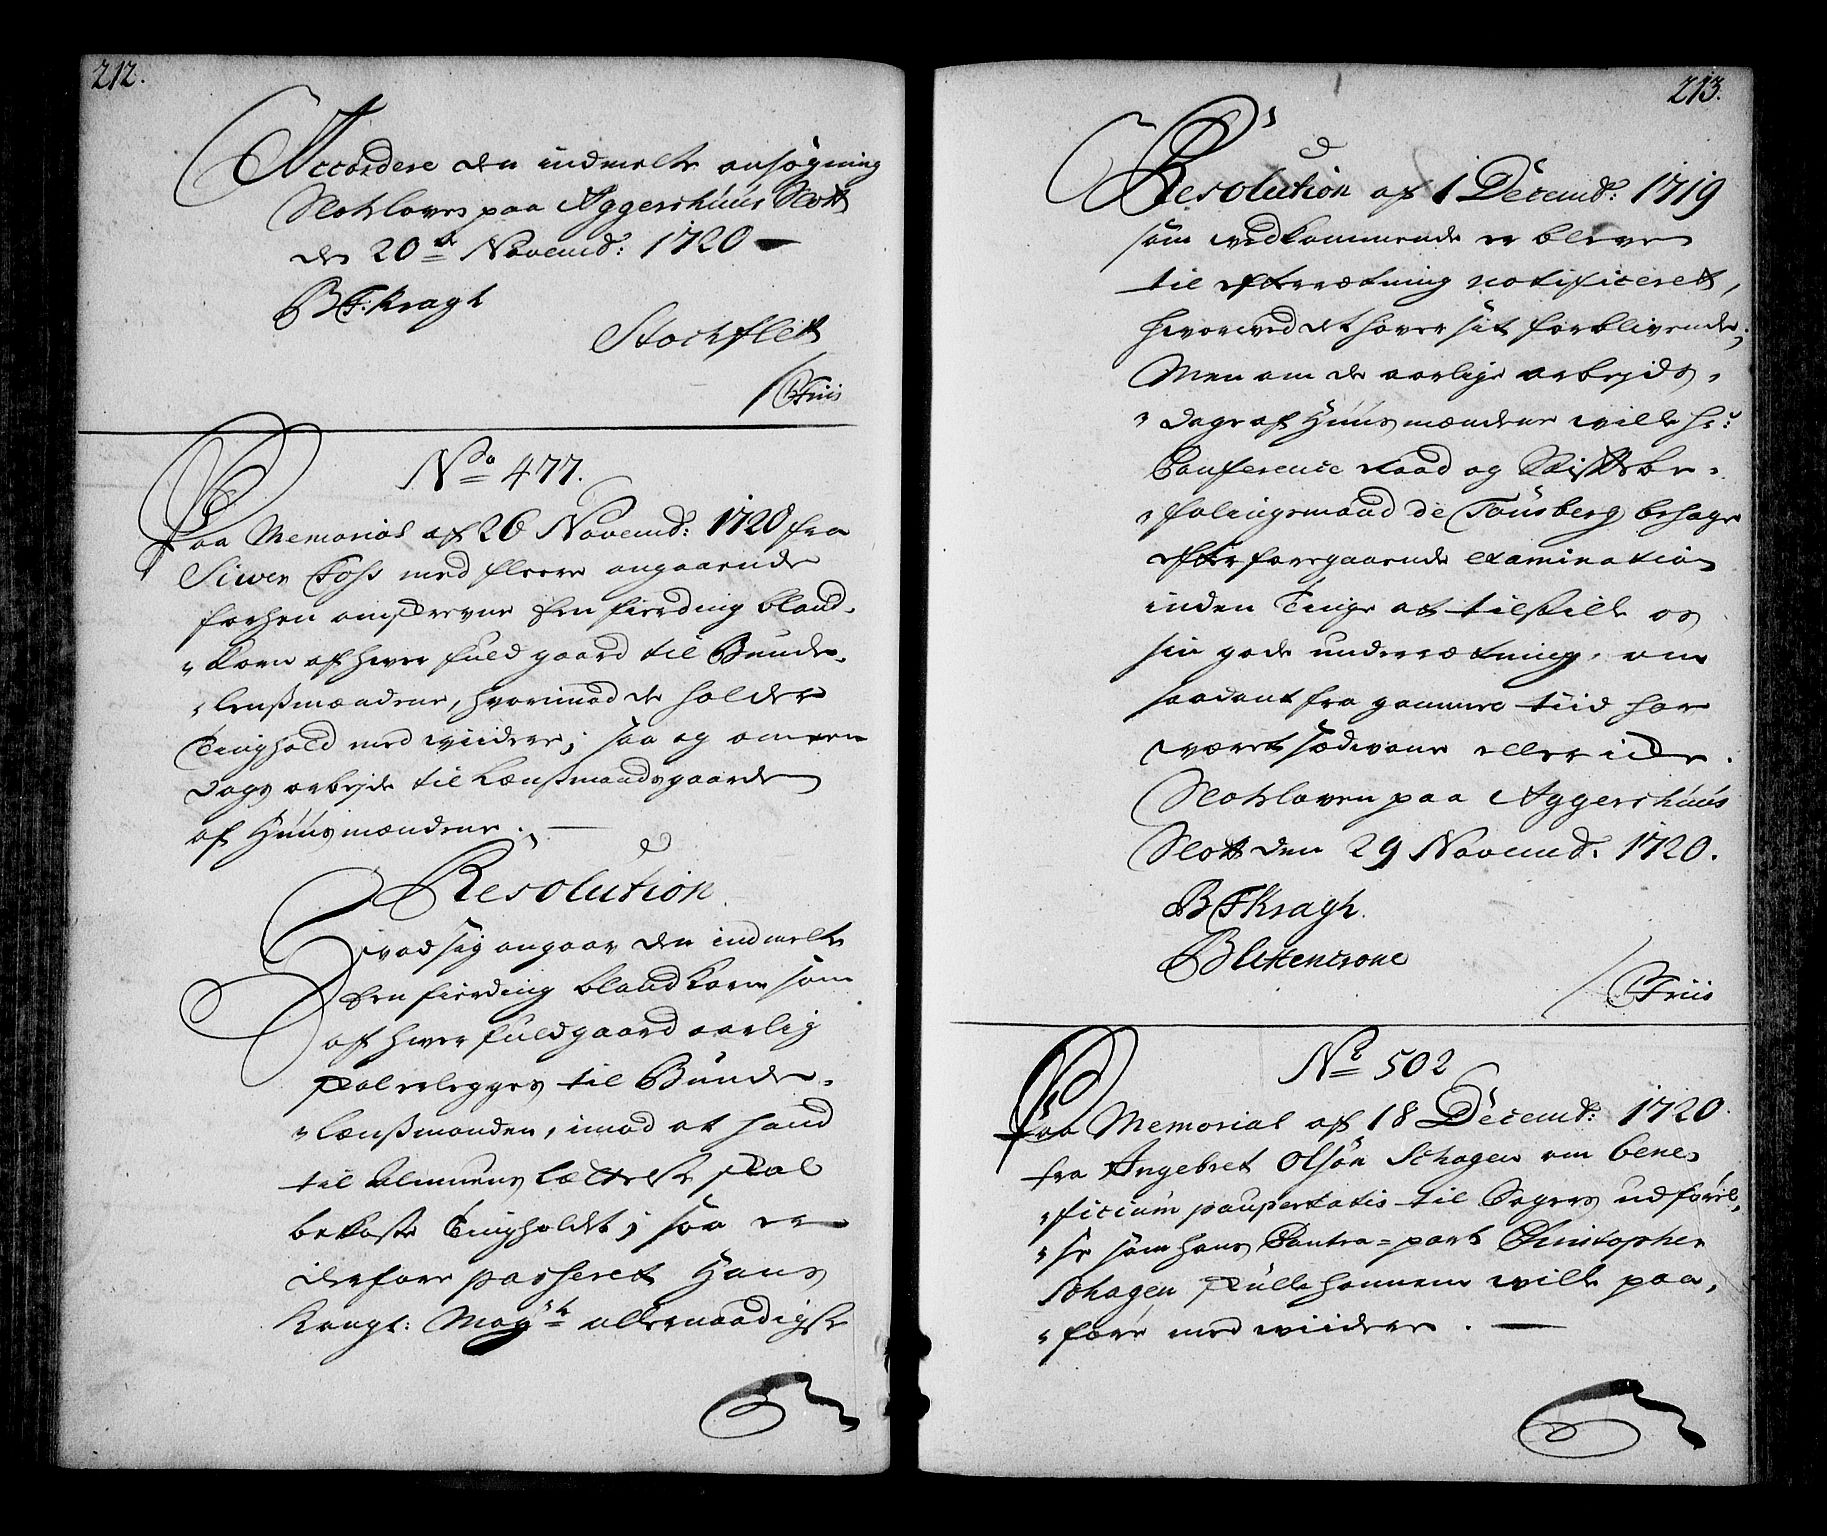 212.
Accordere den indmelte ansøgning
Slotzloven paa Aggershuus Slott
den 20de Novemb: 1720
B F: Kragh
Stochfleth
/ CFriis
No 477.
Paa Memorial af 26 Novemb: 1720 fra
Siwer Foss med fleere angaaende
forhen omskrevne een fierding bland-
"korn af hver fuld gaard til Bunde-
"lenßmændene, hvorimod de holder
Tinghold med wiidere; saa og om een
dags arbejde til Lænßmandsgaarden
af Huusmændene.
Resolution
Hvad sig angaar den indmelte
een fierding blandkorn som
af hver fuldgaard aarlig
skal erlegges til Bunde-
"lænßmanden, imod at hand
til Almuens lættelse skal
bekoste Tingholdet; saa er
derfore passeret Hans
Kongl: Mayts allernaadigste
213.
Resolution af 1 Decemb: 1719
som vedkommende er bleven
til efterrætning notificeret,
hvorved det haver sit forblivende;
Men om de aarlige arbejds-
"dage af Huusmændene wille hr:
Conference Raad og Stiftsbe-
"falingsmand de Tonsberg behage
efter foregaaende examination
inden Tinge at tilstille os
sin gode underrætning, om
saadant fra gammel tiid har
været sædvane eller icke.
Slotzloven paa Aggershuus
Slott den 29 Novemb. 1720.
B F Kragh.
B Littencrone
/ CFriis
No 502
Paa Memorial af 18 Decemb: 1720.
fra Angebret Olsøn Schagen om bene-
"ficium paupertatis til Sagers udførel-
"se som hans Contra=part Christopher
Schagen skulle hannem wille paa-
"føre med wiidere.